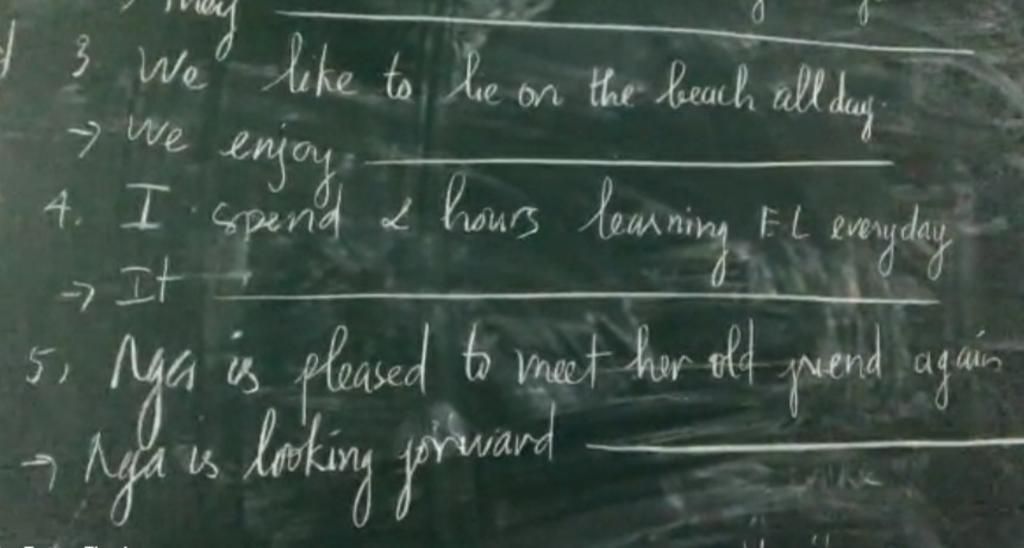 They
3. We like to lie on the beach all day.
→ We enjoy
4. I spend 2 hours learning EL everyday
→ It
5, Nga is pleased to meet her old friend again
→ Nga is looking forward